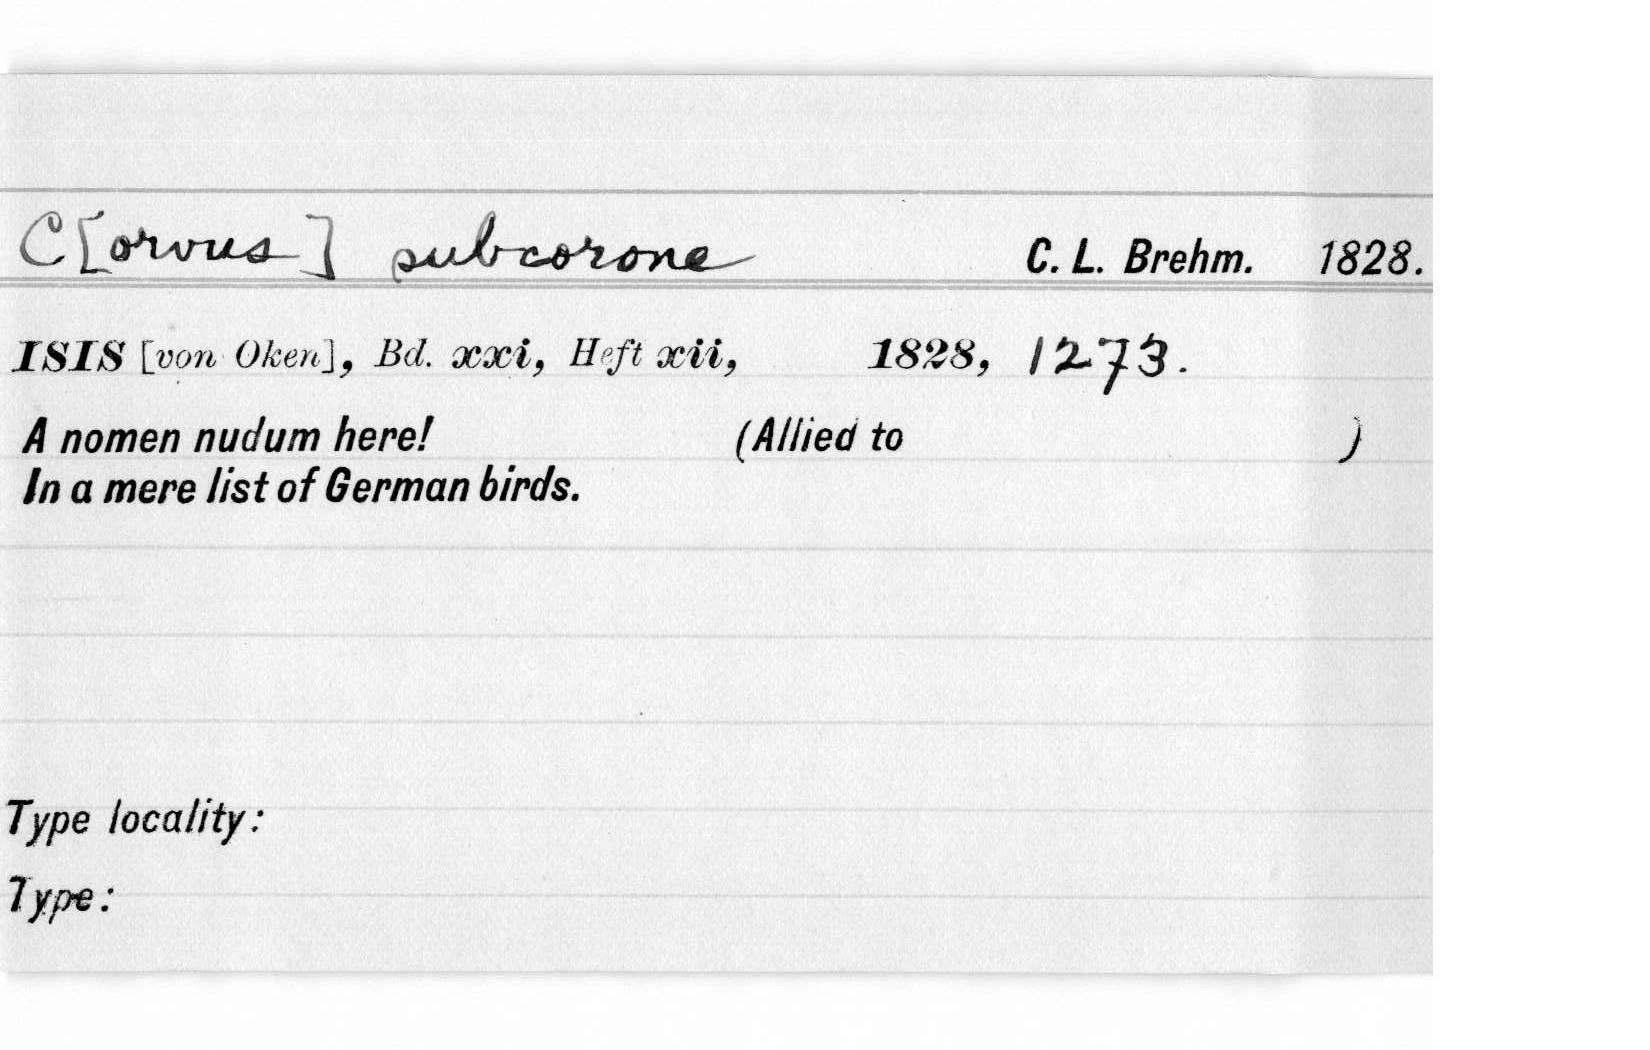 C[orvus] subcorone C. L. Brehm. 1828.
ISIS [von Oken], Bd. xxi, Heft xii, 1828, 1273.
A nomen nudum here! (Allied to )
In a mere list of German birds.
Type locality:
Type: